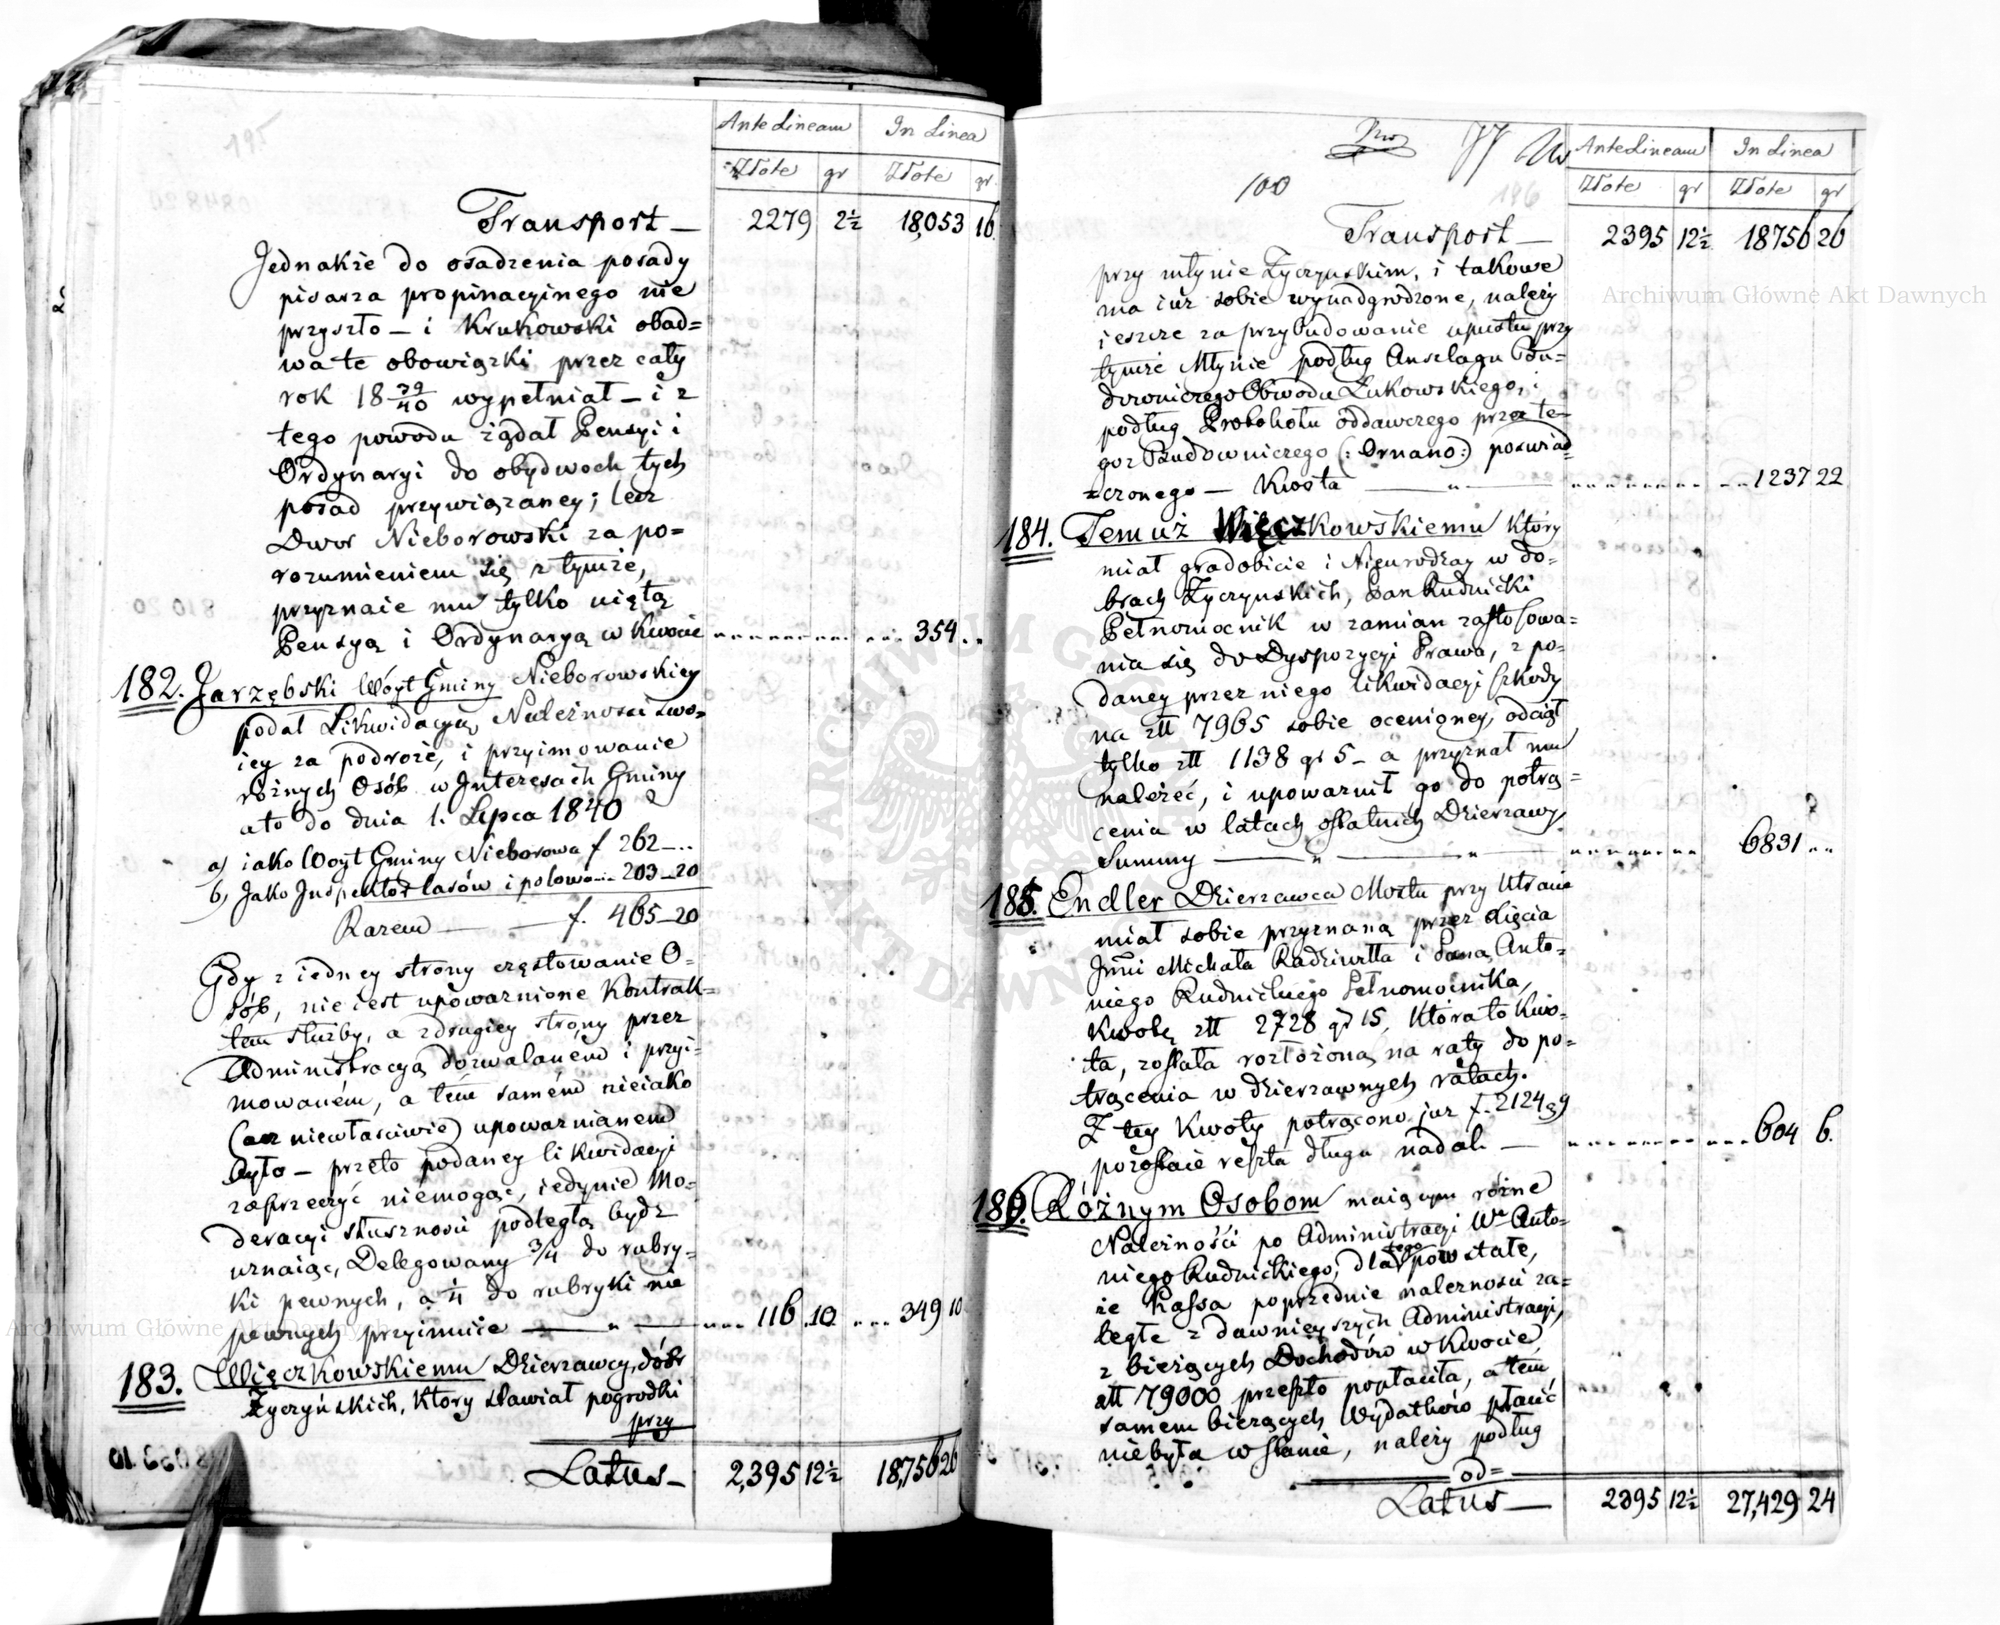 195
Ante Lineam In Linea
Złote gr Złote gr
Transport — 2279 2½ 18,053 16
Jednakże do osadzenia posady
pisarza propinacyinego nie
przyszło — i Krukowski obad=
wa te obowiązki przez cały
rok 18 39/40 wypełniał — i z
tego powodu żądał Pensyi i
Ordynaryi do obydwoch tych
posad przywiązaney; lecz
Dwor Nieborowski za po=
rozumieniem się z tymże,
przyznaie mu tylko
Pensyą i Ordynaryą w kwocie 354
182. Jarzębski Wóyt Gminy Nieborowskiey
podał Likwidacyą Należności swo=
iey za podroże, i przyimowanie
różnych Osób w Interesach Gminy
a to do dnia 1. Lipca 1840
a) iako Woyt Gminy Nieborowa f 262 — ..
b) Jako Inspektor lasów i polowa 203 — 20
Razem — f. 465 — 20
Gdy z iedney strony częstowanie O=
sób, nie iest upoważnione Kontrak=
tem służby, a z drugiey strony przez
Administracyą dozwalanem i przyi=
mowaném, a tém samém nieiako
(acz niewłaściwie) upoważnianem
było — przeto podaney likwidacyi
zaprzeczyć niemogąc, iedynie Mo=
deracyi słuszności podległą bydz
uznaiąc, Delegowany ¾ do rubry=
ki pewnych, a ¼ do rubryki nie
pewnych przyimuie — " — 116 10 349 10
183. Więczkowskiemu Dzierzawcy dóbr
Zyczyńskich, który stawiał pogrodki
przy
Latus — 2,395 12½ 18,756 26
100
196
Ante Lineam In Linea
Złote gr Złote gr
Transport — 2395 12½ 18756 26
przy młynie Zyczyńskim, i takowe
ma iuz sobie wynadgrodzone, należy
ieszcze za przybudowanie upustu przy
tymże Młynie podług Anszlagu Bu=
downiczego Obwodu Łukowskiego, i
podług Protokołu oddawczego przez te=
goz Budowniczego (: Ornano :) poświad=
=czonego — Kwota — " — 1237 22
184. Temuż Więczkowskiemu który
miał gradobicie i Nieurodzay w do=
brach Zyczyńskich, Pan Rudnicki
Pełnomocnik w zamian zastosowa=
nia się do Dyspozycyi Prawa, z po=
daney przez niego likwidacyi szkody
na złł 7965 sobie ocenioney, odciął
tylko złł 1138 gr 5 — a przyznał mu
należeć, i upoważnił go do potrą=
cenia w latach ostatnich Dzierzawy
Summy — " — " — 6831
185. Endler Dzierzawca Mostu przy Utracie
miał sobie przyznaną przez Xięcia
Jmći Michała Radziwiłła i Pana Anto=
niego Rudnickiego Pełnomocnika,
Kwotę złł 2728 gr 15, która to Kwo=
ta, została rozłożoną na raty do po=
trącenia w dzierzawnych ratach.
Z tey Kwoty potrącono juz f. 2124 g 9
pozostaie reszta długu nadal — 604 6.
186. Różnym Osobom maiącym różne
Należności po Administracyi Wo Anto=
niego Rudnickiego, dla tego powstałe,
że Kassa poprzednie należności za=
ległe z dawnieyszych Administracyi,
z bieżących Dochodów w Kwocie
złł 79000 przeszło popłaciła, a tem
samem bieżących Wydatków płacić
niebyła w stanie, należy podług
od=
Latus — 2395 12½ 27,429 24
Archiwum Główne Akt Dawnych
Archiwum Główne Akt Dawnych
ARCHIWUM GŁÓWNE AKT DAWNYCH